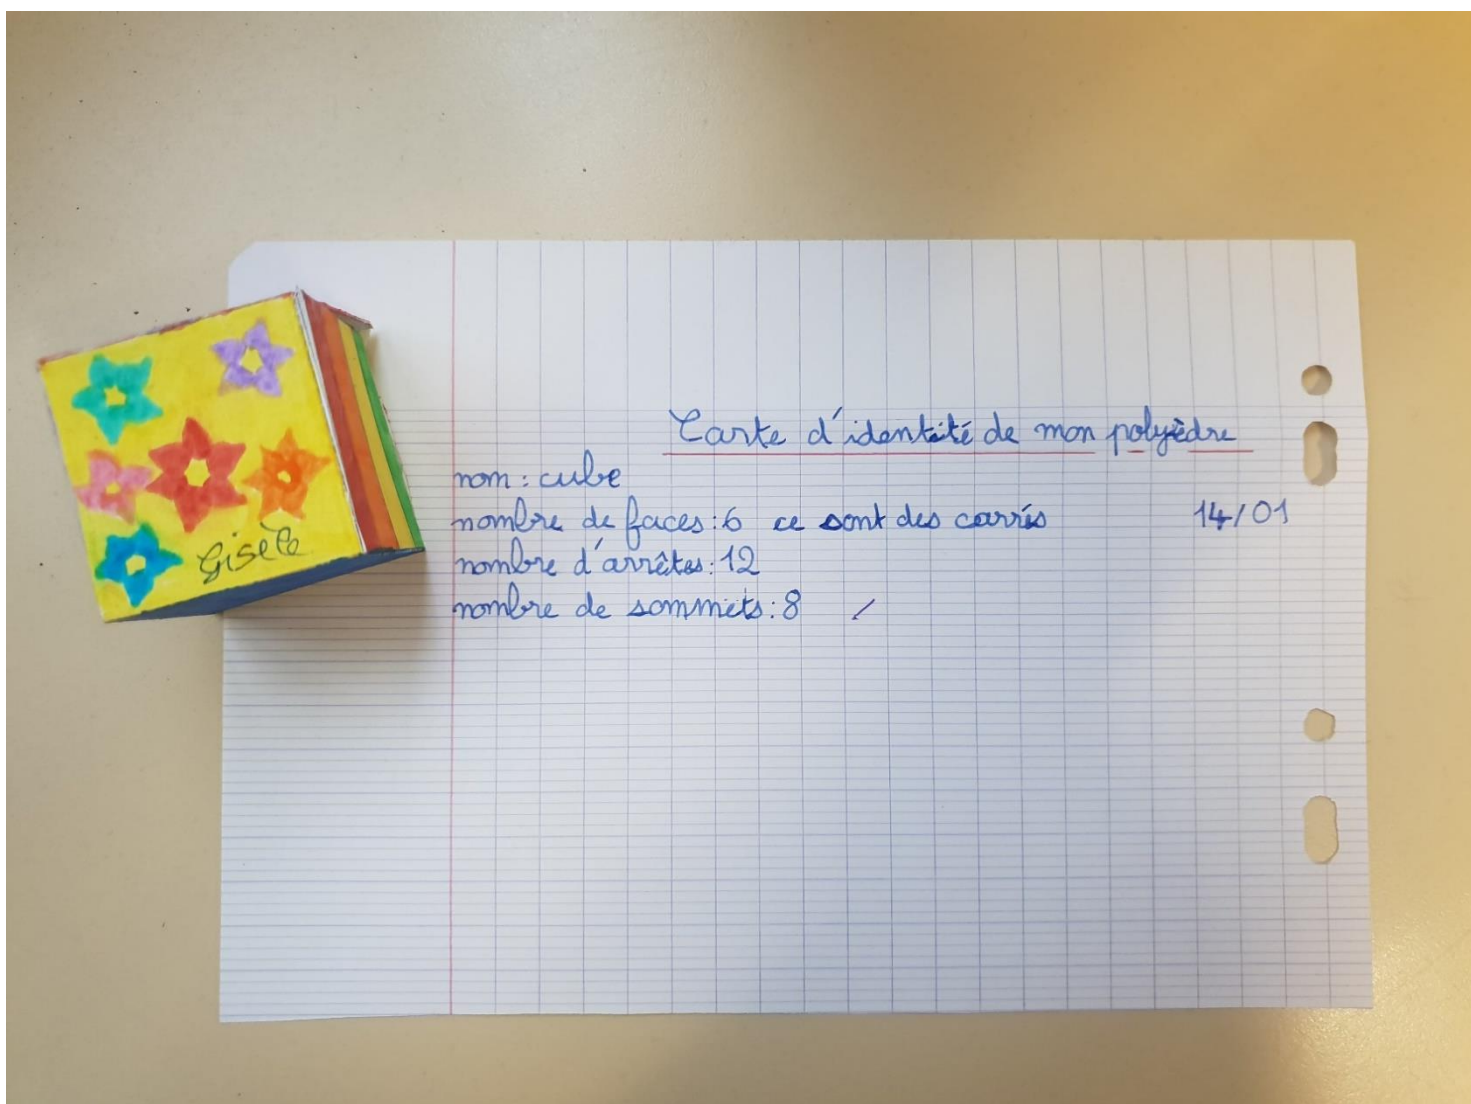 Carte d'identité de mon polyèdre
nom : cube
nombre de faces : 6 ce sont des carrés 14/01
nombre d'arrêtes : 12
nombre de sommets : 8
Gisèle